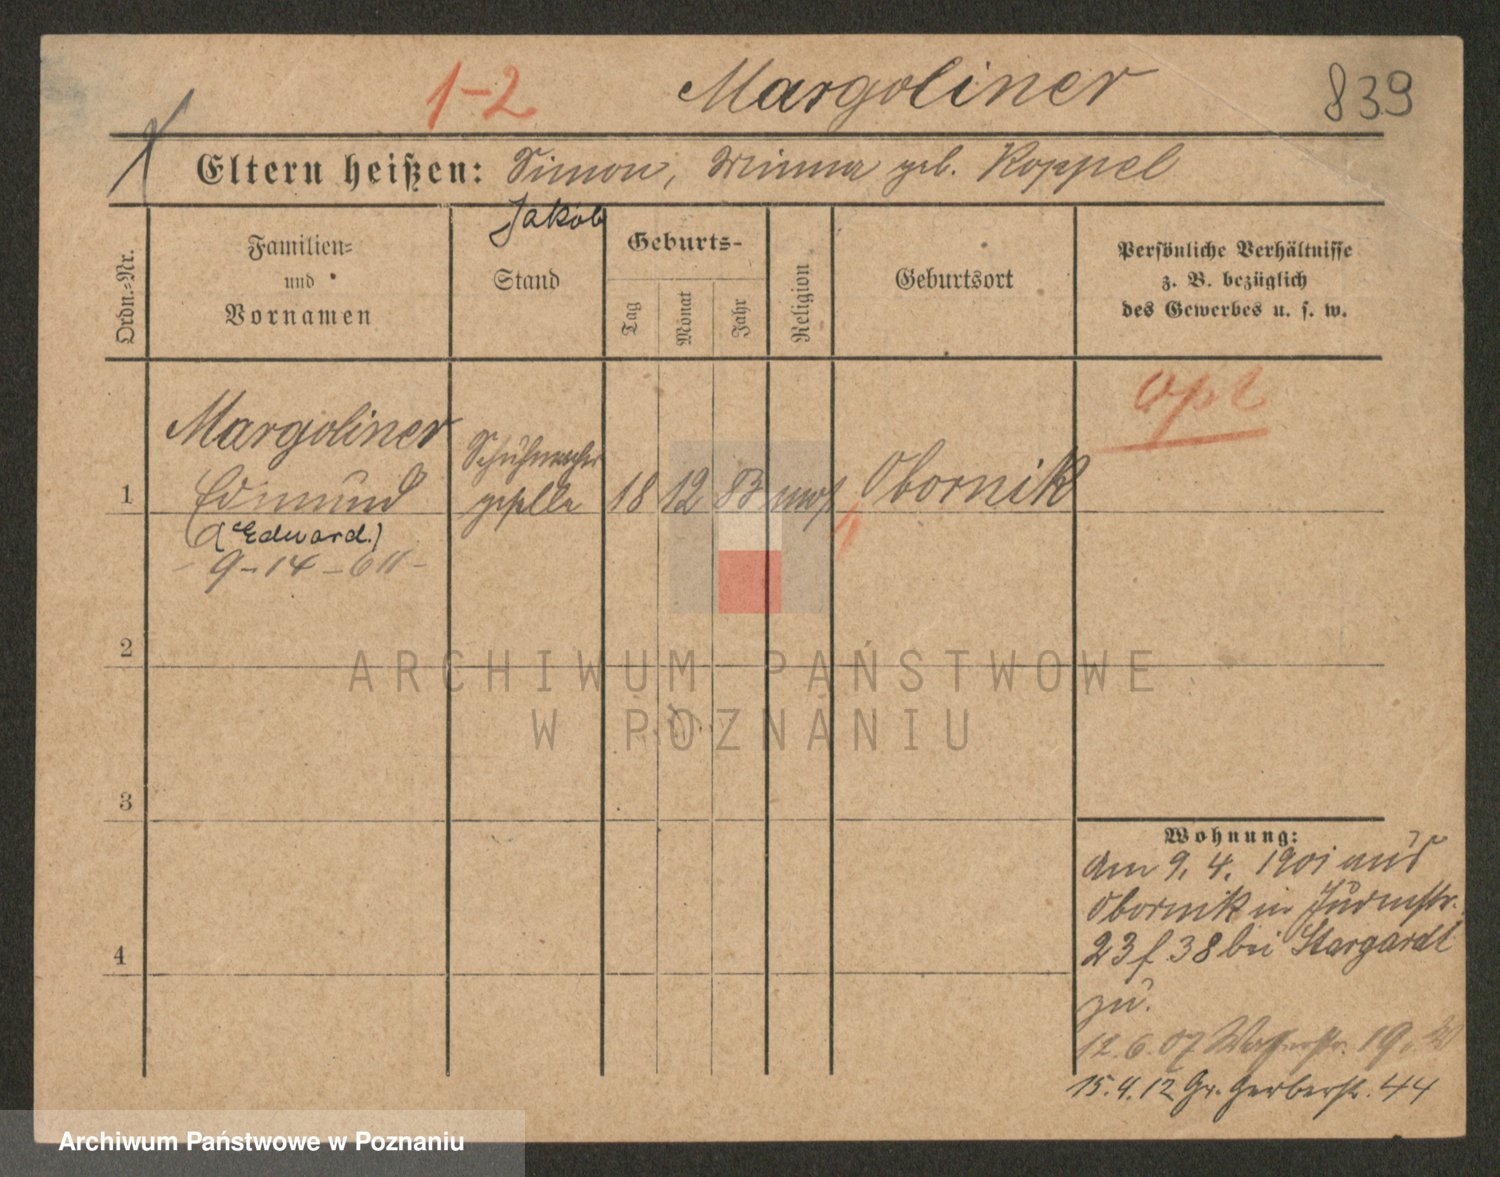 1-2 Margoliner 839
Eltern heißen: Simon, Minna geb. Koppel
Jakob
Ordn.=Nr.
Familien=
und
Vornamen
Stand
Geburts-
Tag
Monat
Jahr
Religion
Geburtsort
Persönliche Verhältnisse
z. B. bezüglich
des Gewerbes u. s. w.
opt
1
Margoliner
Edmund
(Edward.)
9-14-
Schuhmacher
geselle
18 12 83 mos
Obornik
2
3
4
Wohnung:
am 9. 4. 1901 aus
Obornik in
23 f 38 bei Stargardt
zu.
12.6.07 Wasserstr. 19.
15.4.12 Gr. Gerberstr. 44
ARCHIWUM PAŃSTWOWE
W POZNANIU
Archiwum Państwowe w Poznaniu